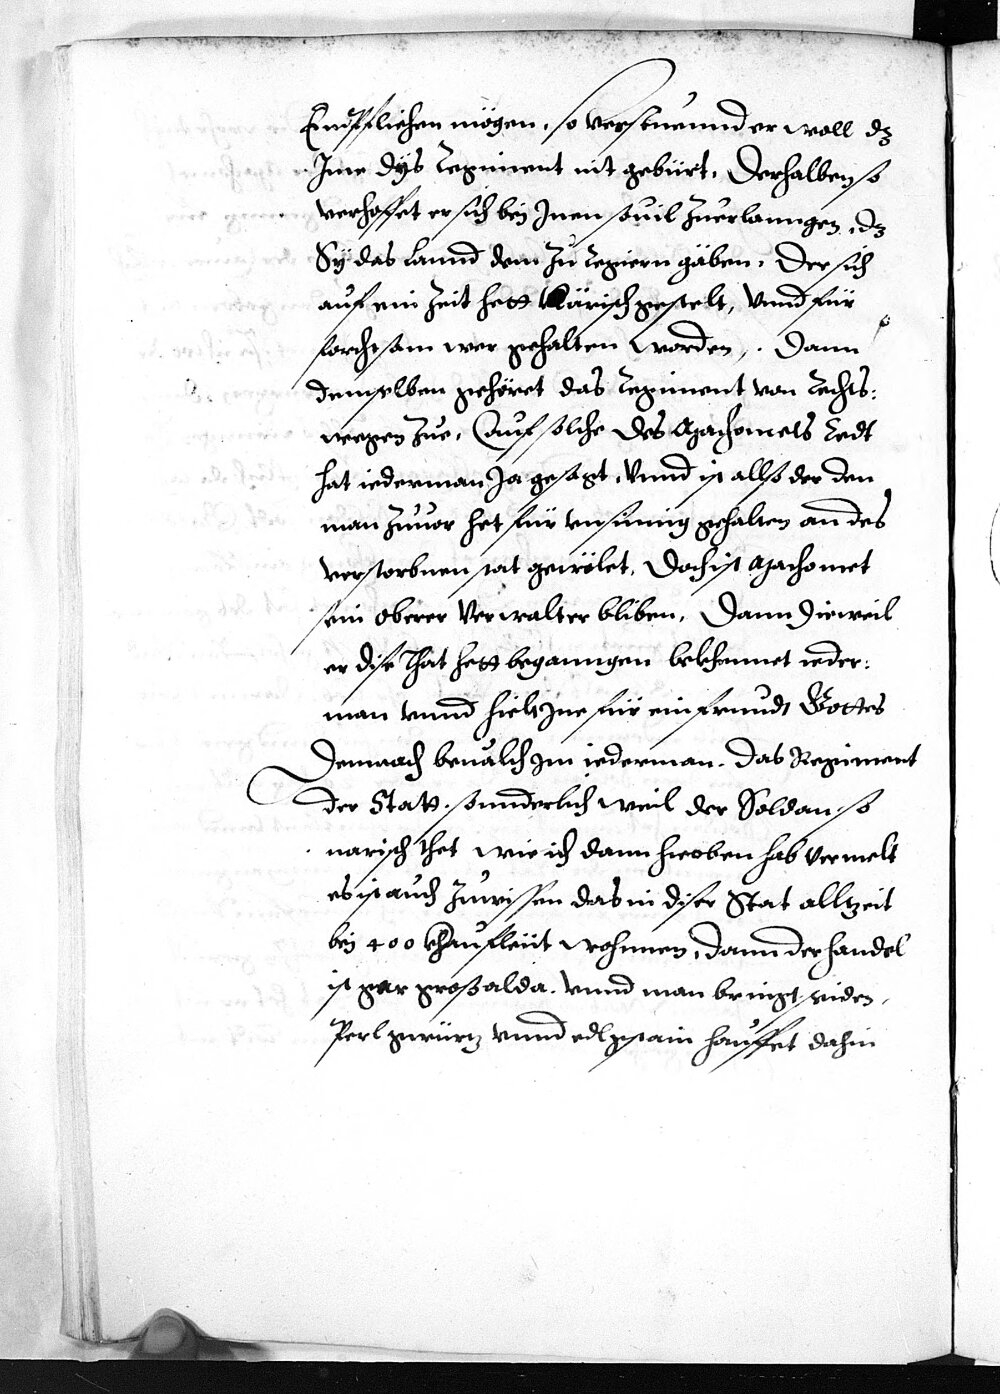 Endtpfliehen mögen, so verstuennd er woll dz
Jme dys Regiment nit gebürt, Derhalben so
verhoffet er sich bej Jnen souil Zuerlanngen, dz
Sÿ das Lannd dem Zu Regiern gäben, Der sich
auf ein Zeit hett Närisch gestelt, Vnnd für
forchtsam wer gehalten worden, Dann
demselben gehöret das Regiment von Rechts:
weegen Zue, Auf solche des Machomets Redt
hat iederman Ja gesagt, Vnnd ist allso der den
man Zuuor het für vnsinnig gehalten an des
verstorbnen stat gewölet, Doch ist Machomet
sein oberer Verwalter bliben, Dann dieweil
er dise That hett beganngen bekhennet ieder:
man vnnd hielt Jne für ein freundt Gottes
Demnach beualch Jm iederman das Regiment
der Statt, sonnderlich weil der Soldan so
narisch thet wie ich dann hieoben hab Vermelt
es ist auch Zuwissen das in diser Stat alltzeit
bej 400 Khaufleüt wohnnen, dann der handel
ist gar groß alda, vnnd man bringt siden,
Perl gwürtz vnnd edlgstain hauffet dahin